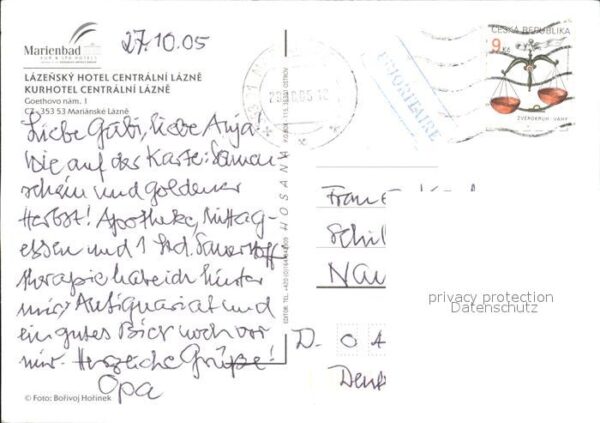 Marienbad
KUR & SPA HOTELS
27.10.05
LÁZEŇSKÝ HOTEL CENTRÁLNÍ LÁZNĚ
KURHOTEL CENTRÁLNÍ LÁZNĚ
Goethovo nám. 1
CZ - 353 53 Mariánské Lázně
Liebe Gabi, liebe Anja!
Wie auf der Karte: Sonnen-
schein und goldener
Herbst! Apotheke, Mittag-
essen und 1 Std. Sauerstoff
therapie habe ich hinter
mir, Antiquariat und
ein gutes Bier noch vor
mir. Herzliche Grüße!
Opa
© Foto: Bořivoj Hořínek
HOSANA
ČESKÁ REPUBLIKA
9 Kč
ZVEROKRUH VÁHY
PRIORITAIRE
Schil
Nau
D. O
privacy protection
Datenschutz